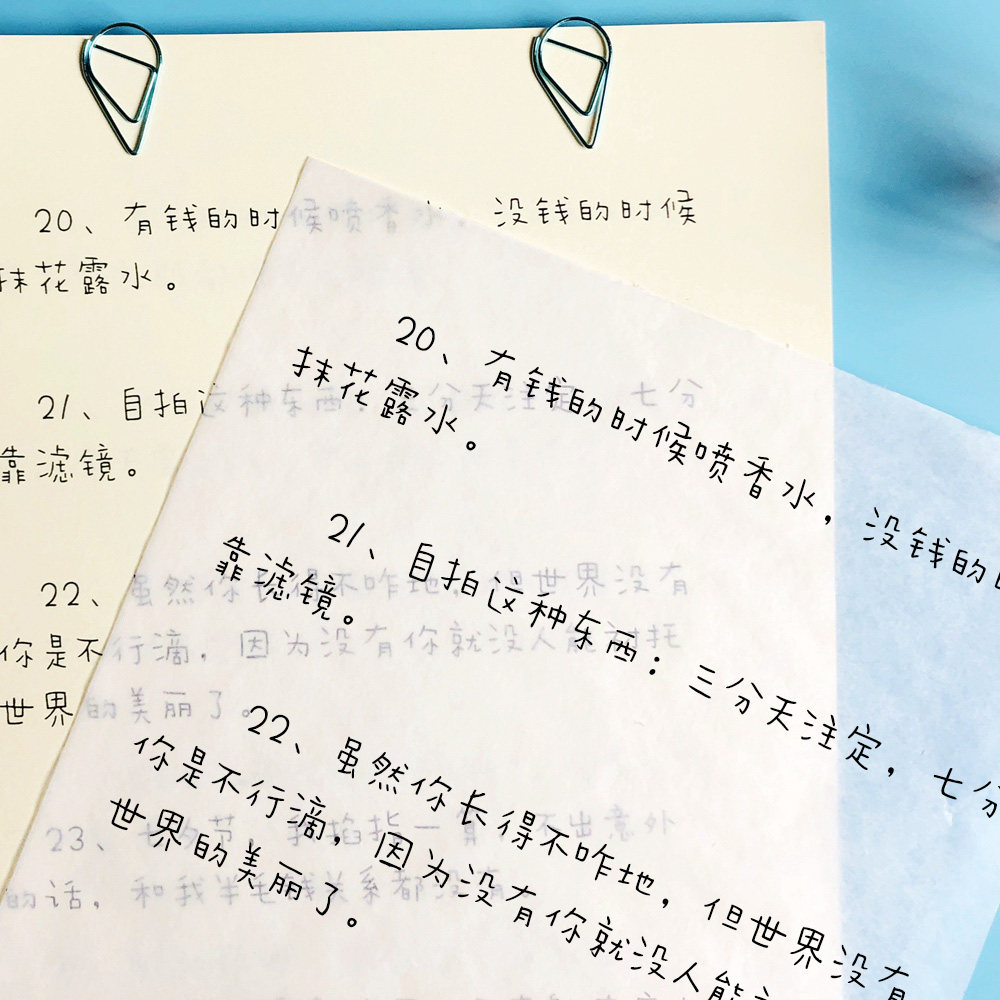 20、有钱的时候喷香水，没钱的时候
抹花露水。
21、自拍这种东西：三分天注定，七分
靠滤镜。
22、虽然你长得不咋地，但世界没有
你是不行滴，因为没有你就没人能衬托
世界的美丽了。
23、七夕节，我掐指一算，不出意外
的话，和我半毛钱关系都没有。
20、有钱的时候喷香水，没钱的
抹花露水。
21、自拍这种东西：三分天注定，七分
靠滤镜。
22、虽然你长得不咋地，但世界没有
你是不行滴，因为没有你就没人能
世界的美丽了。